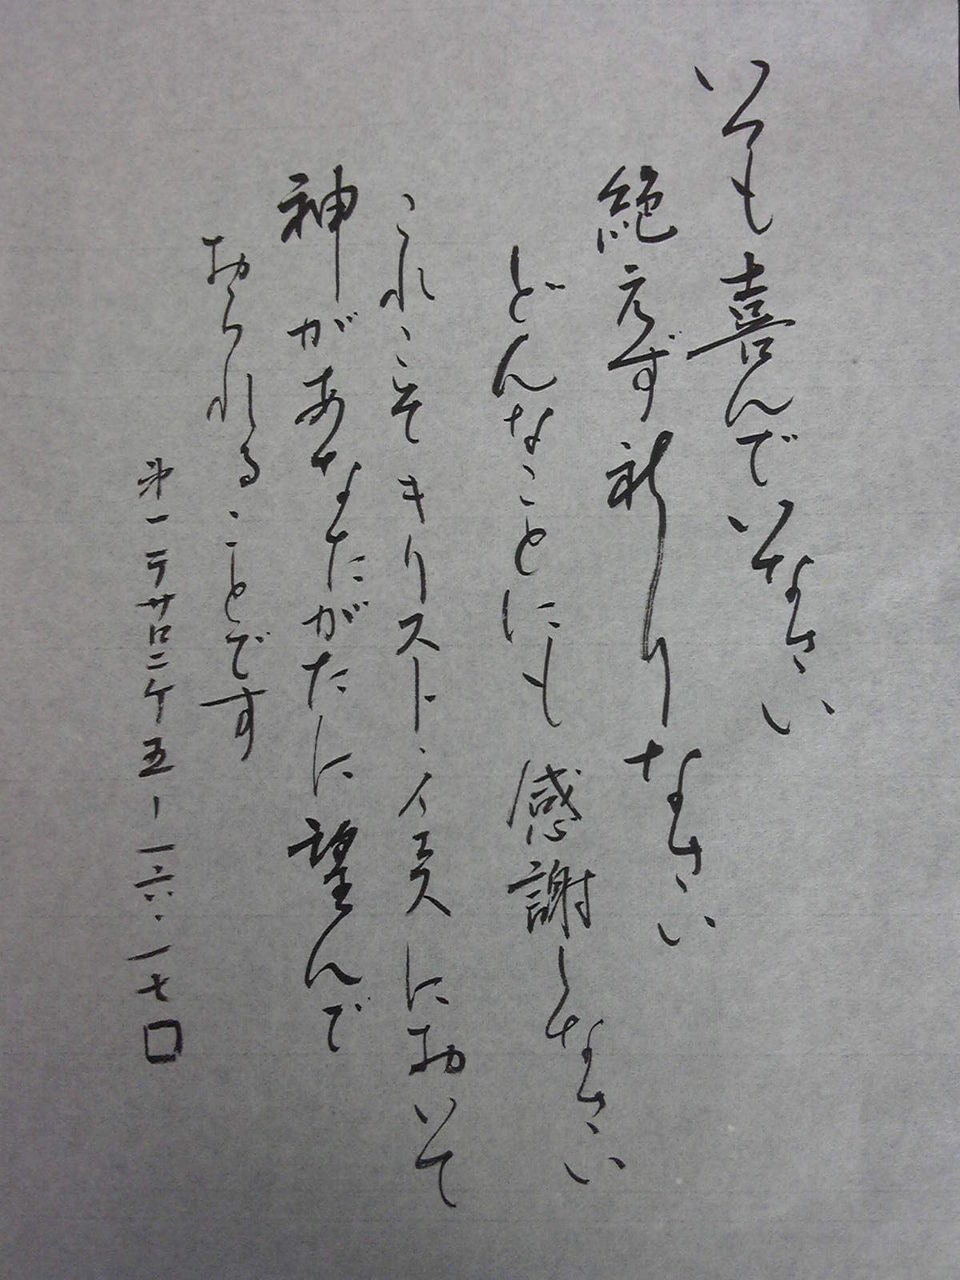 いつも喜んでいなさい
絶えず祈りなさい
どんなことにも感謝しなさい
これこそキリスト・イエスにおいて
神があなたがたに望んで
おられることです
第一テサロニケ五ー一六・一七